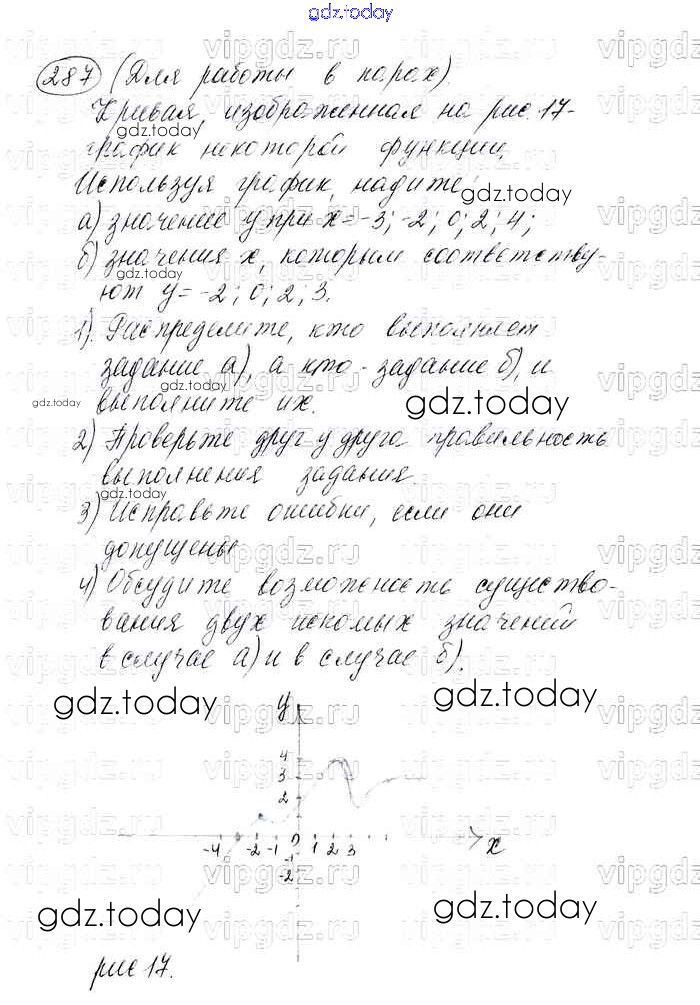 gdz.today
287 (Для работы в парах).
Кривая, изображенная на рис. 17-
график некоторой функции.
Используя график, надите:
а) значение y при x = -3; -2; 0; 2; 4;
б) значения x, которым соответству-
ют y = -2; 0; 2; 3.
1). Распределите, кто выполняет
задание а), а кто - задание б), и
выполните их.
2) Проверьте друг у друга правильность
выполнения задания.
3) Исправьте ошибки, если они
допущены
4) Обсудите возможность существо-
вания двух искомых значений
в случае а) и в случае б).
gdz.today gdz.today
y
4
3
2
-4 -2 -1 0 1 2 3 x
-1
-2
gdz.today gdz.today
рис 17.